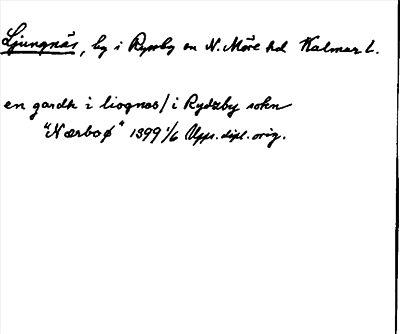 Ljungnäs, by i Ryssby sn N. Möre hd Kalmar l.
en gardh i liognæs / i Rydzby sokn
"Nærboø" 1399 1/6 Upps. dipl. orig.